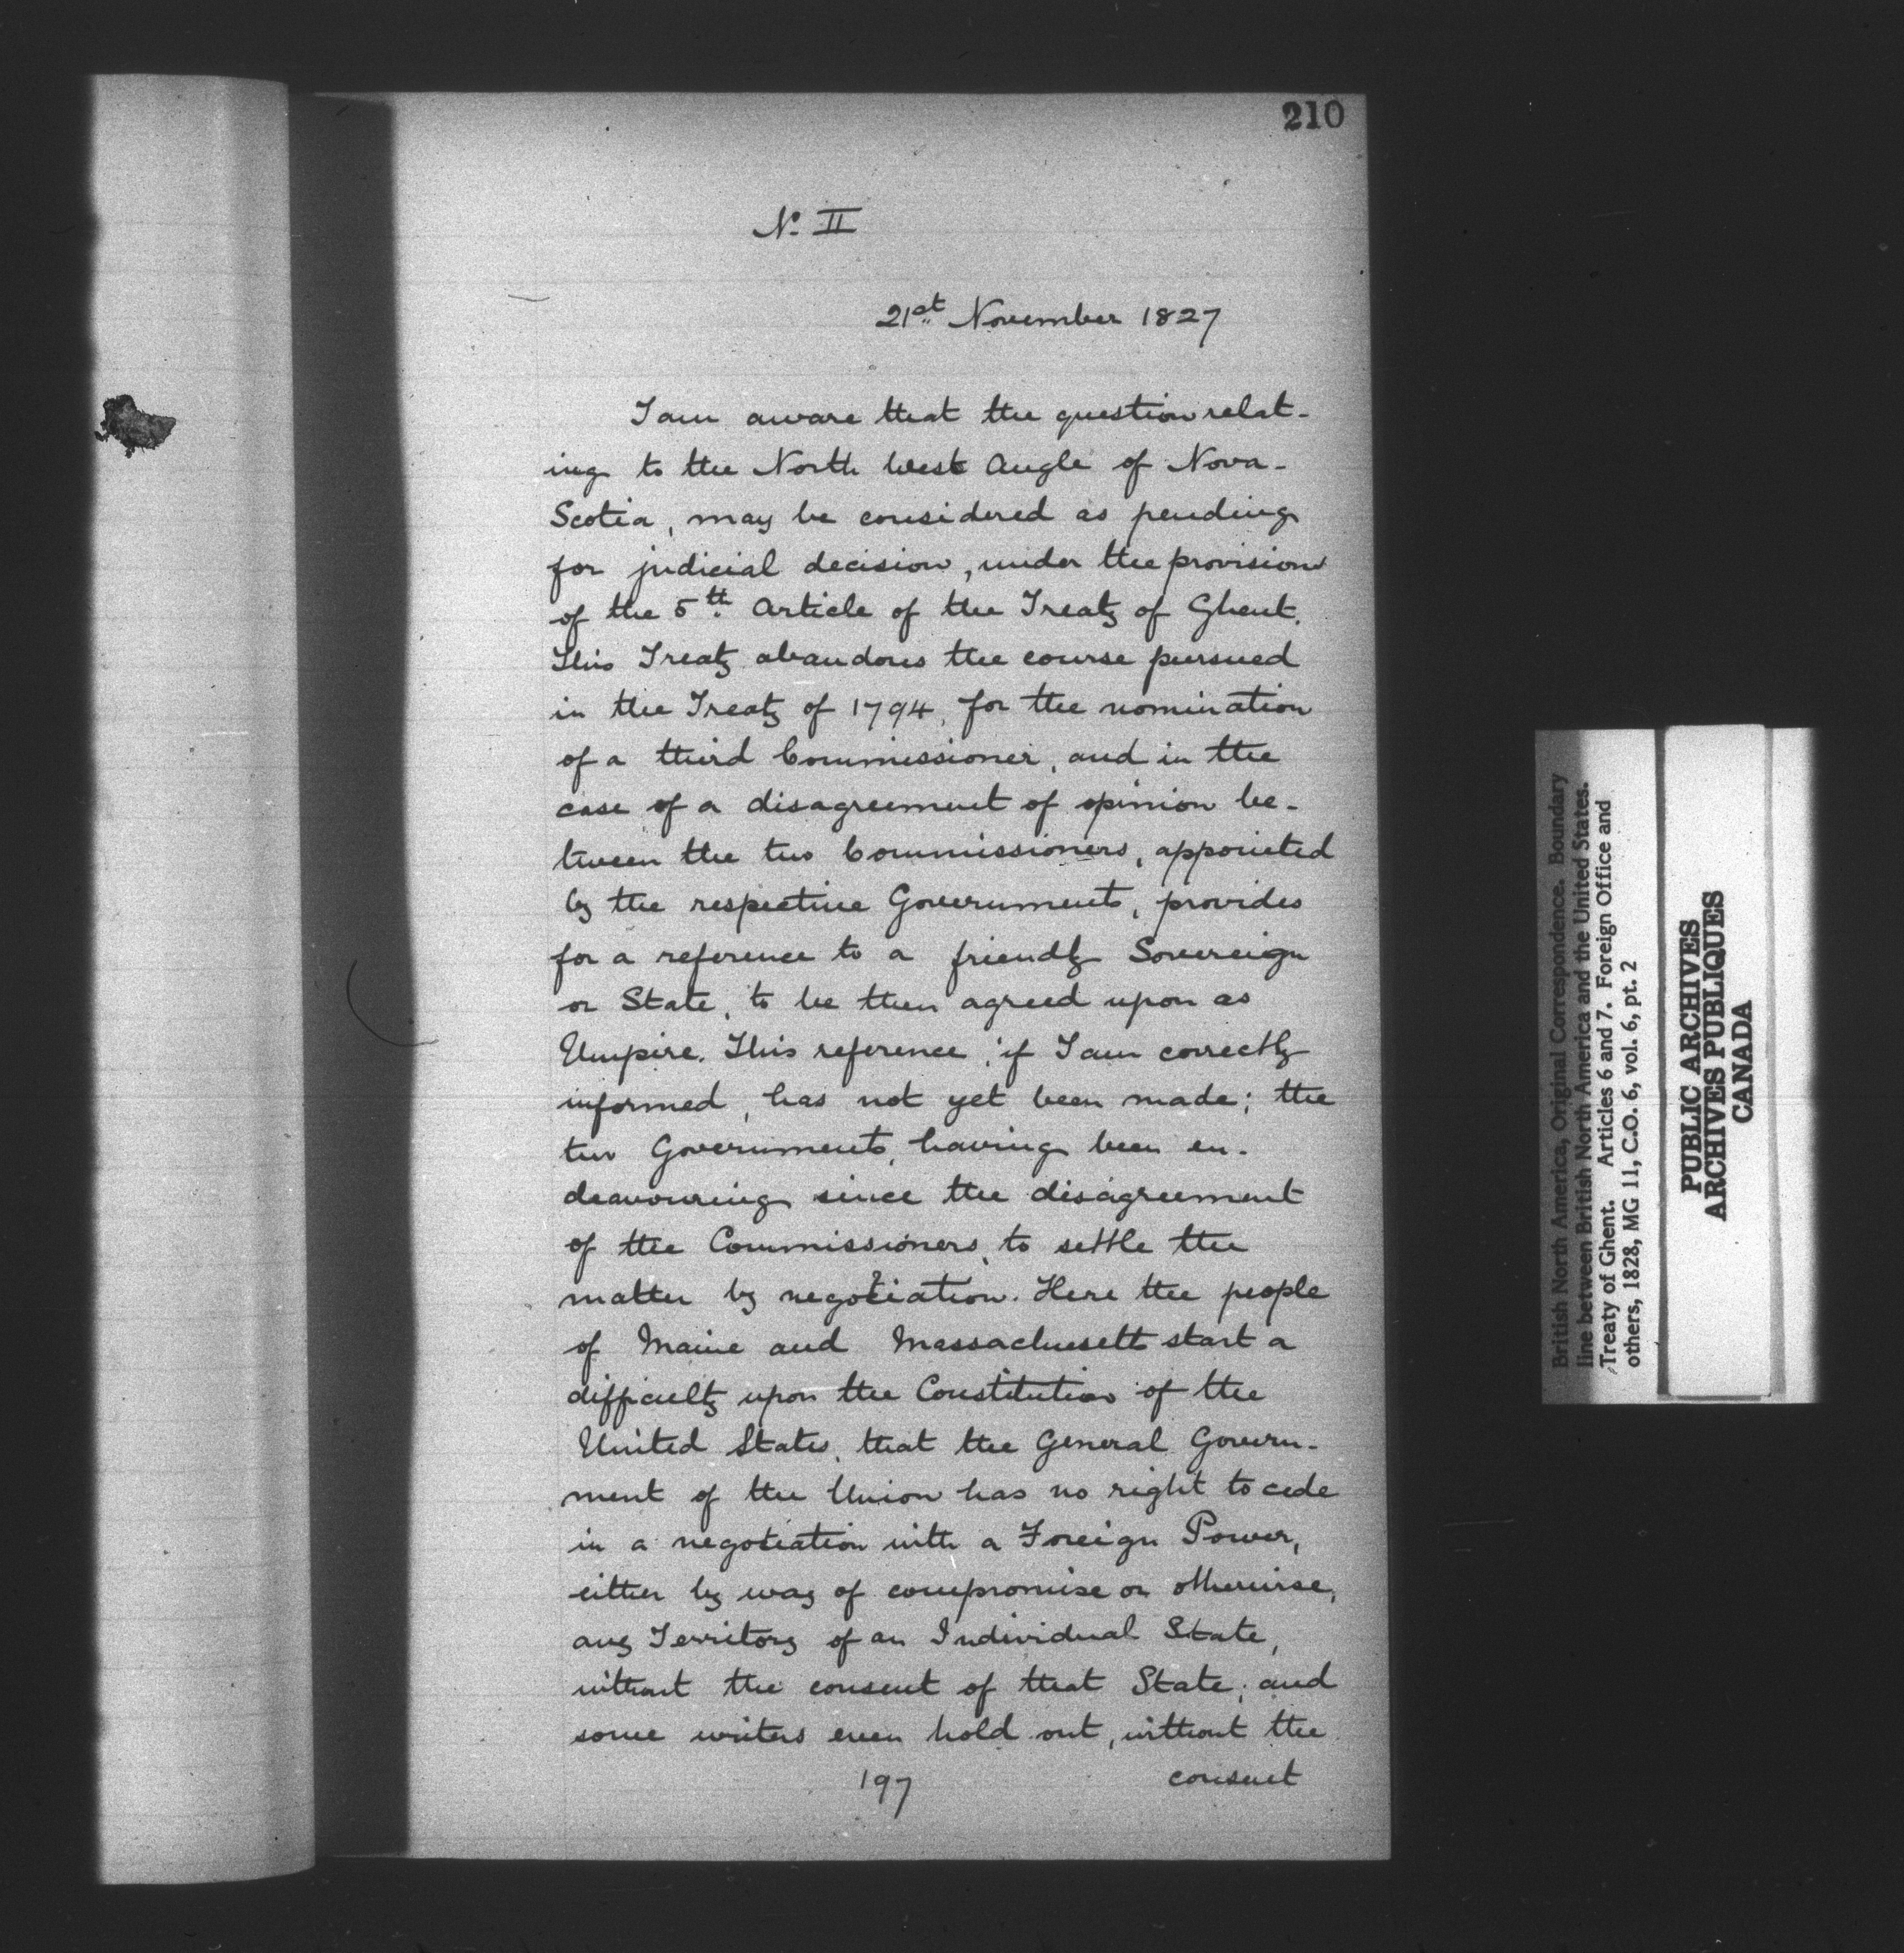 210
No. II
21st November 1827
I am aware that the question relat-
ing to the North West Angle of Nova-
Scotia, may be considered as pending
for judicial decision, under the provisions
of the 5th. Article of the Treaty of Ghent.
This Treaty abandons the course pursued
in the Treaty of 1794, for the nomination
of a third Commissioner, and in the
case of a disagreement of opinion be-
tween the two Commissioners, appointed
by the respective Governments, provides
for a reference to a friendly Sovereign
or State, to be then agreed upon as
Umpire. This reference, if I am correctly
informed, has not yet been made; the
two Governments, having been en-
deavouring since the disagreement
of the Commissioners, to settle the
matter by negotiation. Here the people
of Maine and Massachusetts start a
difficulty upon the Constitution of the
United States, that the General Govern-
ment of the Union has no right to cede
in a negotiation with a Foreign Power,
either by way of compromise or otherwise,
any Territory of an Individual State,
without the consent of that State; and
some writers even hold out, without the
197 consent
British North America, Original Correspondence. Boundary
line between British North America and the United States.
Treaty of Ghent. Articles 6 and 7. Foreign Office and
others, 1828, MG 11, C.O. 6, vol. 6, pt. 2
PUBLIC ARCHIVES
ARCHIVES PUBLIQUES
CANADA